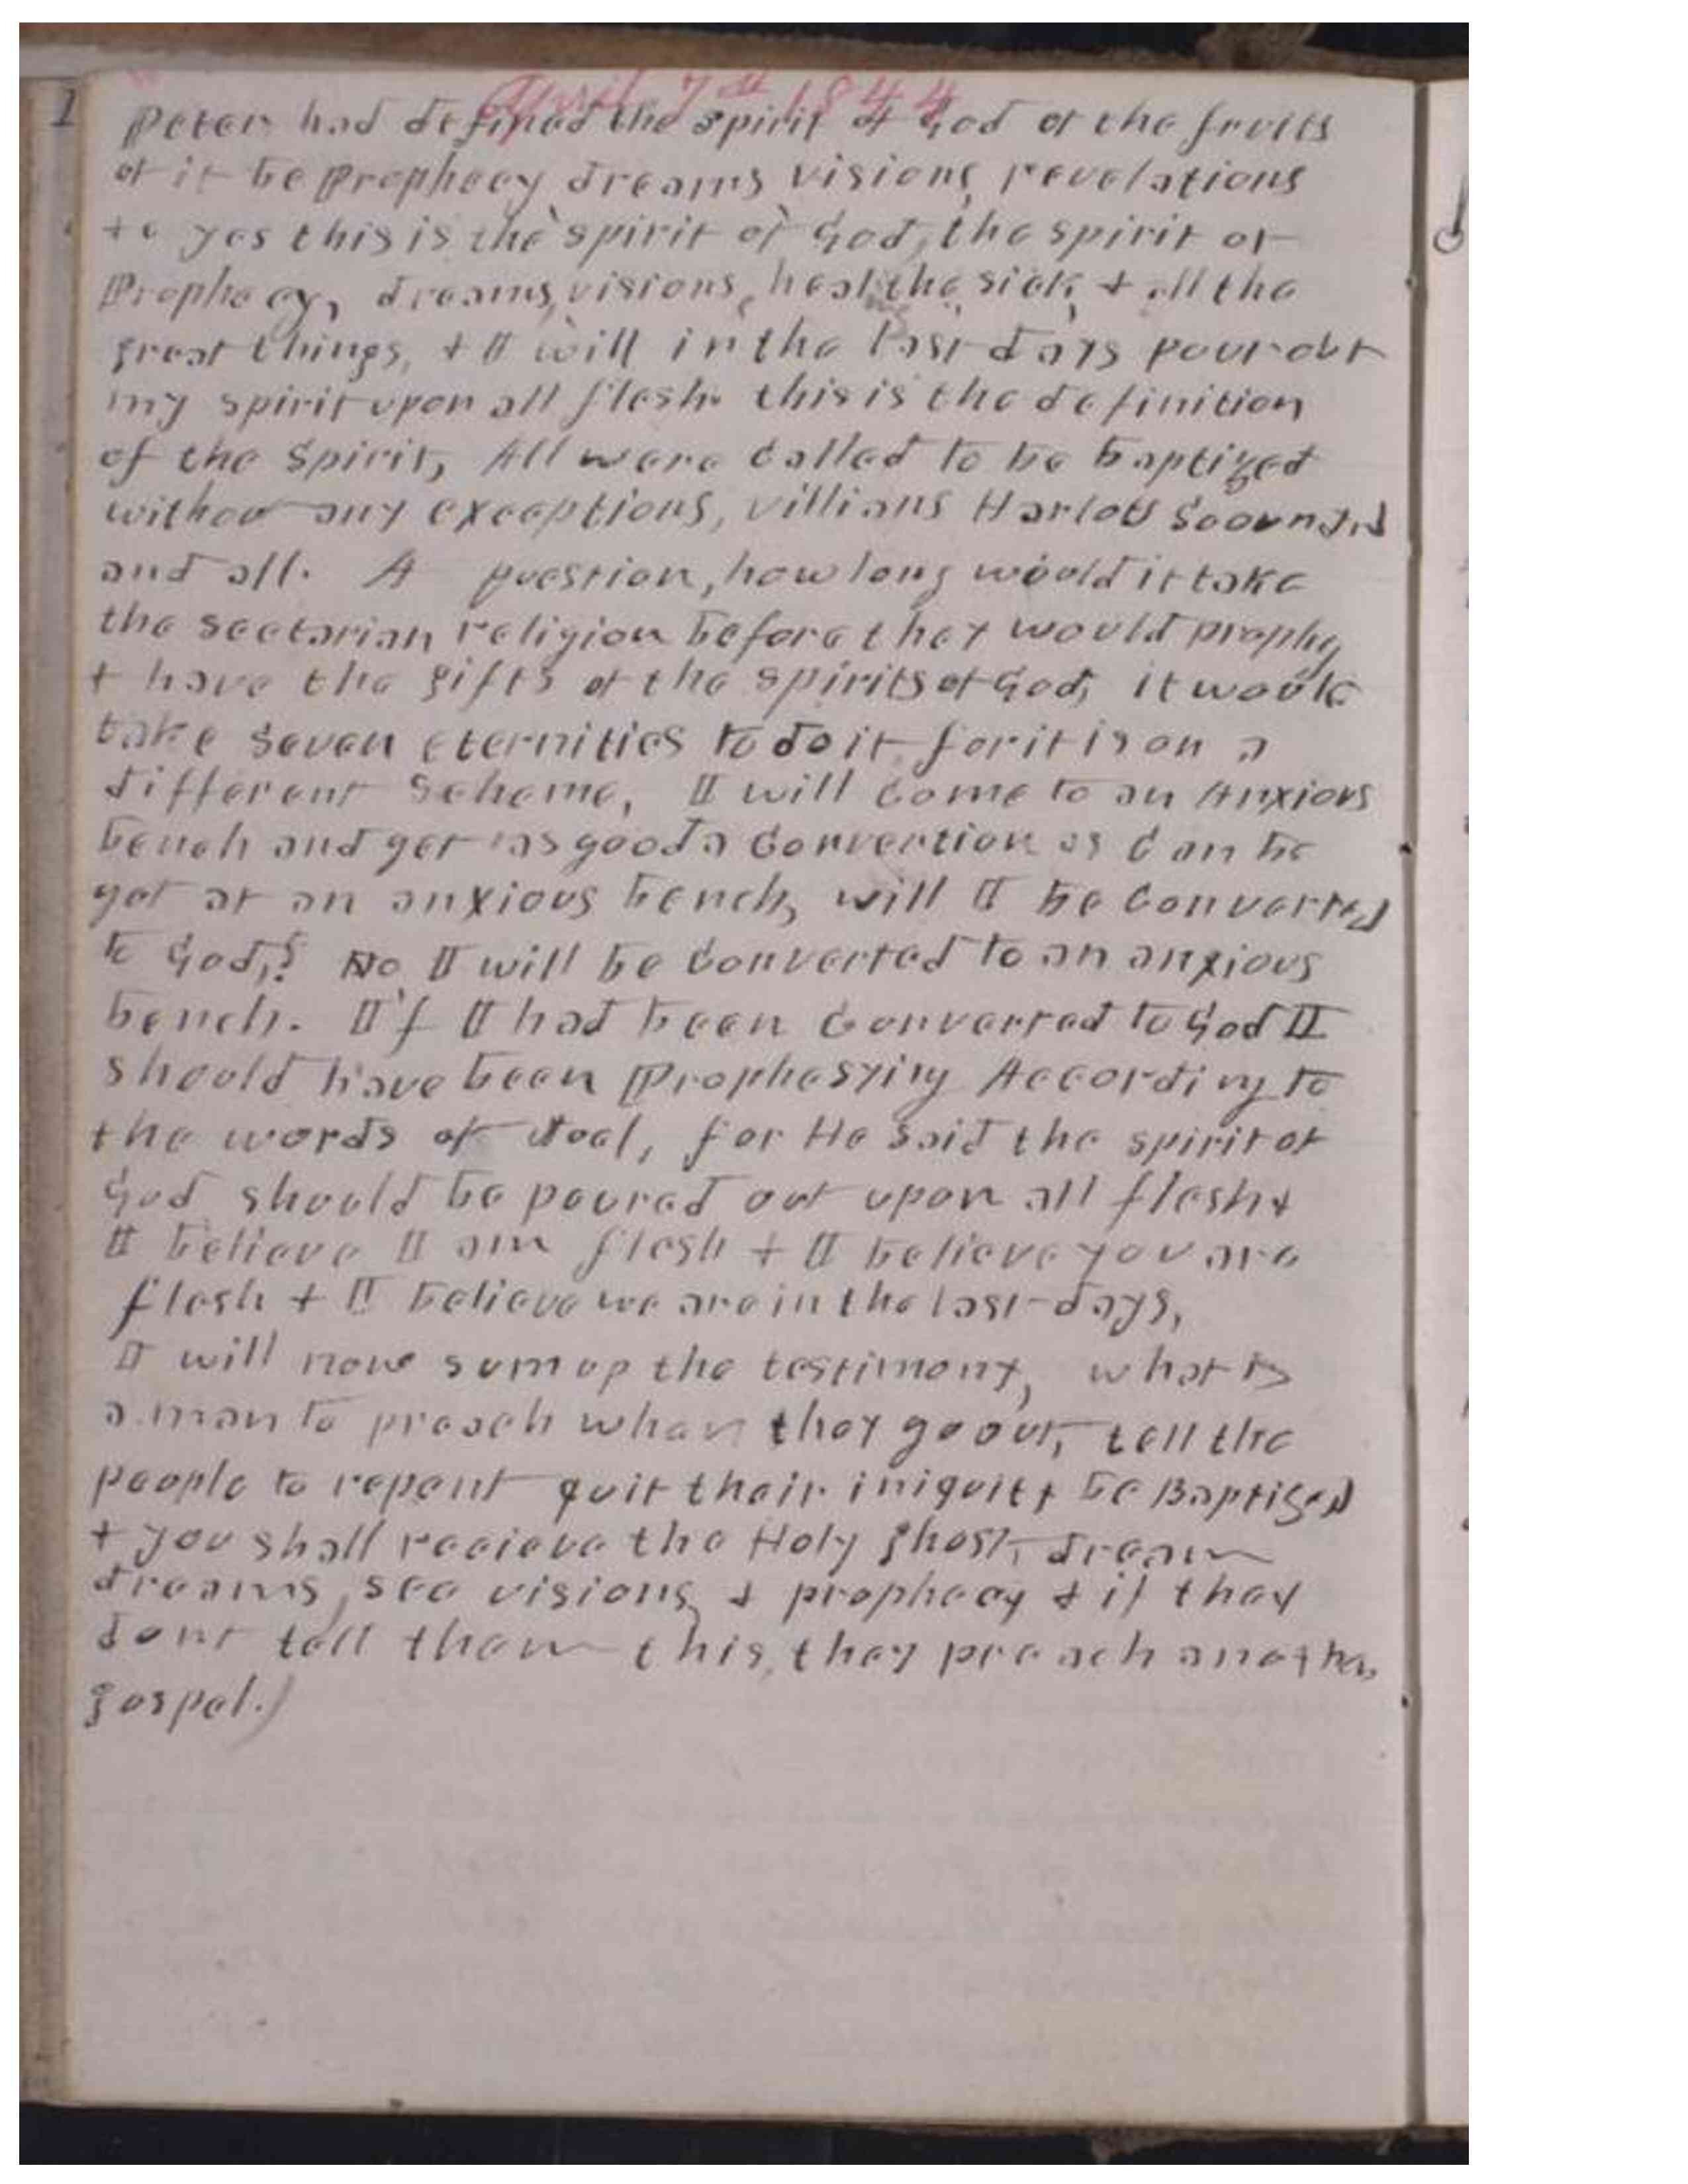 April 7th 1844
Peter had defined the spirit of God or the fruits
of it be Prophecy dreams visions, revelations
&c yes this is the spirit of God, the spirit of
Prophecy, dreams, visions, heal the sick, & all the
great things, & I will in the last days pour out
my spirit upon all flesh this is the definition
of the Spirit, All were Called to be baptized
withou any exceptions, villians Harlots
and all. A question, how long would it take
the sectarian religion before they would prophy
& have the gifts of the spirits of God, it would
take seven eternities to do it for it is on a
different Scheme, I will Come to an Anxious
bench and get as good a Convertion as Can be
got at an anxious bench, will I be Converted
to God,? No I will be Converted to an anxious
bench. If I had been Converted to God I
should have been Prophesying According to
the words of Joel, for He Said the spirit of
God should be poured out upon all flesh &
I believe I am flesh & I believe you are
flesh & I believe we are in the last days,
I will now sum up the testimony, what is
a man to preach when they go out, tell the
people to repent quit their iniquity be Baptised
& you shall recieve the Holy ghost, dream
dreams, see visions, & prophecy & if they
dont tell them this, they preach another
gospel.)